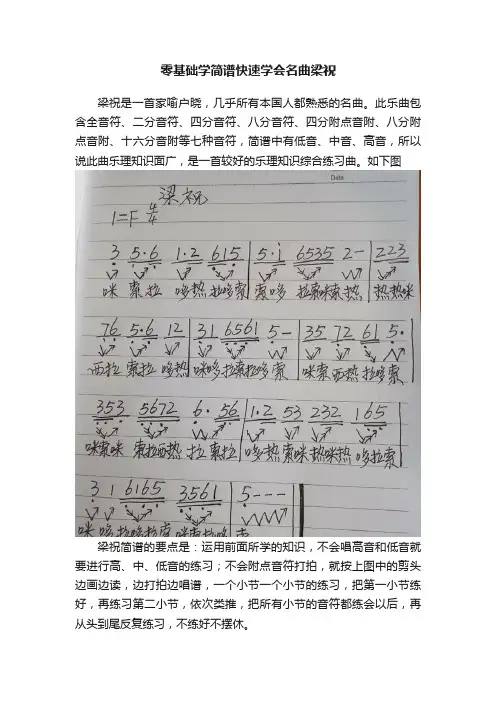 零基础学简谱快速学会名曲梁祝
梁祝是一首家喻户晓,几乎所有本国人都熟悉的名曲。此乐曲包
含全音符、二分音符、四分音符、八分音符、四分附点音附、八分附
点音附、十六分音附等七种音符,简谱中有低音、中音、高音,所以
说此曲乐理知识面广,是一首较好的乐理知识综合练习曲。如下图
Date
梁祝
1=F 4/4
3 5·6 1·2 615 | 5·i 6535 2- | 223
咪 索拉 哆热 拉哆索 索哆 拉索咪索 热 热热咪
76 5·6 12 | 31 6561 5- | 35 72 61 5· |
西拉 索拉 哆热 咪哆 拉索拉哆 索 咪索 西热 拉哆 索
353 5672 6· 56 | 1·2 53 232 165 |
咪索咪 索拉西热 拉 索拉 哆热 索咪 热咪热 哆拉索
3 1 6165 3561 | 5--- ‖
梁祝简谱的要点是:运用前面所学的知识,不会唱高音和低音就
要进行高、中、低音的练习;不会附点音符打拍,就按上图中的剪头
边画边读,边打拍边唱谱,一个小节一个小节的练习,把第一小节练
好,再练习第二小节,依次类推,把所有小节的音符都练会以后,再
从头到尾反复练习,不练好不摆休。